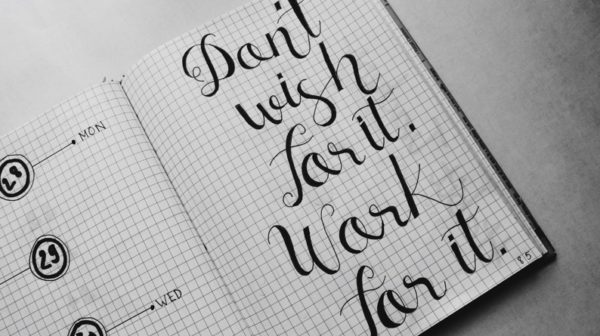 28
MON
29
WED
Don't
wish
for it.
Work
for it.
85